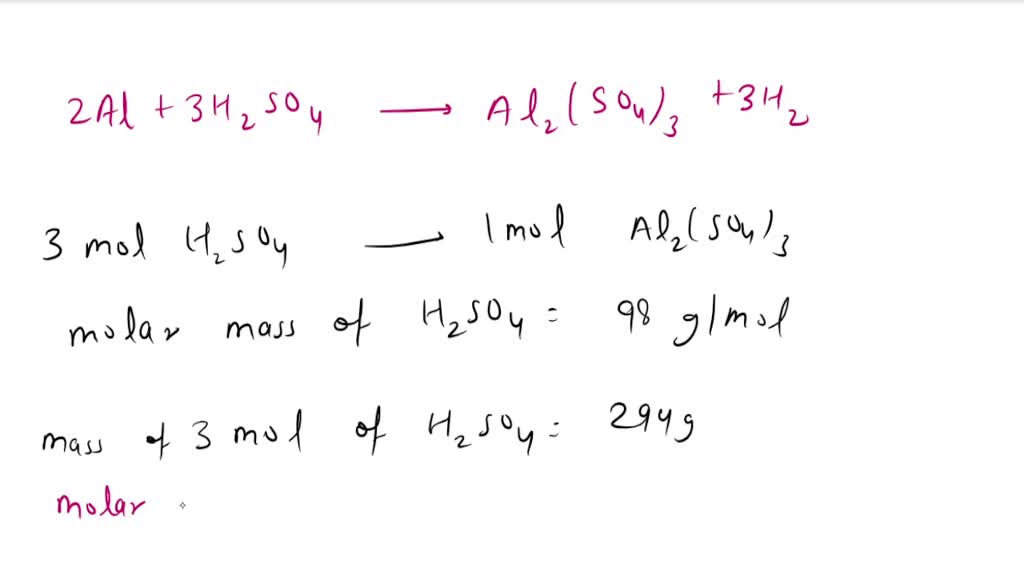 2Al + 3H₂SO₄ ⟶ Al₂(SO₄)₃ + 3H₂
3 mol H₂SO₄ — 1 mol Al₂(SO₄)₃
molar mass of H₂SO₄ = 98 g/mol
mass of 3 mol of H₂SO₄ = 294g
molar